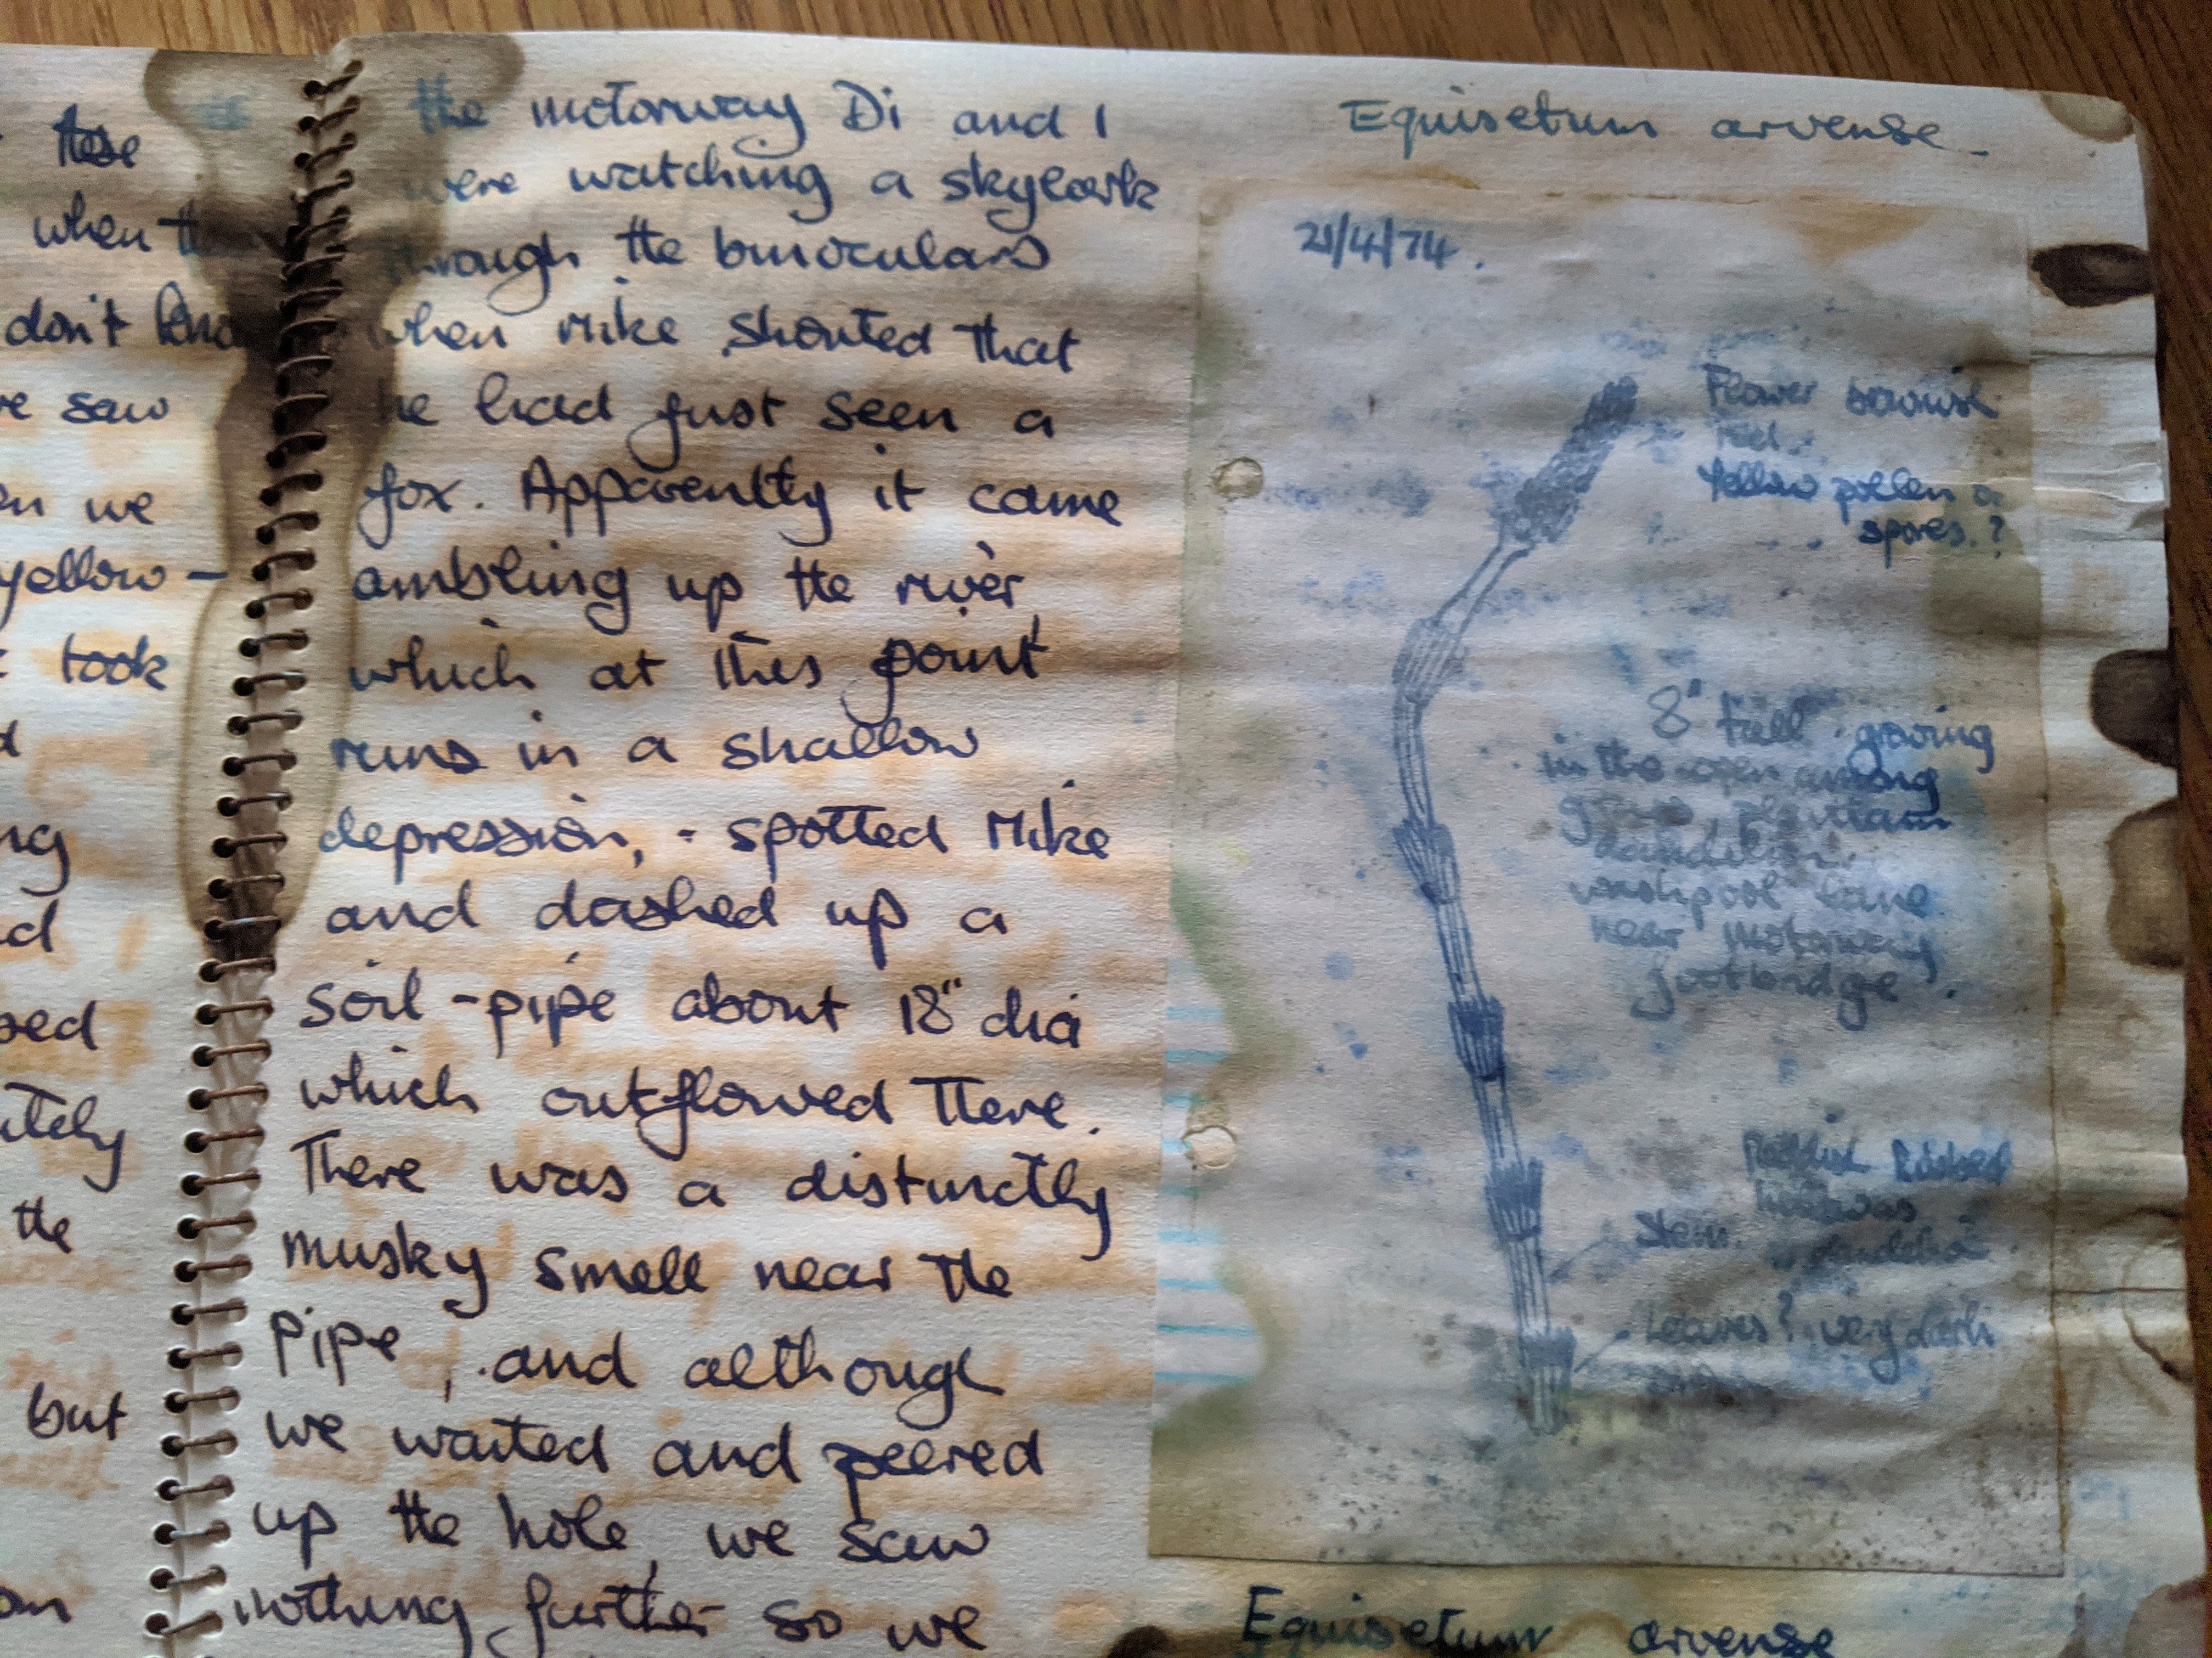 these
when
don't
saw
we
yellow -
took
the
but
the motorway Di and I
were watching a skylark
through the binoculars
when Mike shouted that
he had just seen a
fox. Apparently it came
ambling up the river,
which at this point
runs in a shallow
depression, - spotted Mike
and dashed up a
soil-pipe about 18" dia
which outflowed there.
There was a distinctly
musky smell near the
pipe, and although
we waited and peered
up the hole, we saw
nothing further so we
Equisetum arvense.
21/4/74.
Flower brownish
red.
Yellow pollen or
spores.?
8" tall growing
in the open among
grass, plantain
dandelion.
washpool lane
near motorway
footbridge.
Reddish Ribbed
Stem.
Leaves? very dark
Equisetum arvense